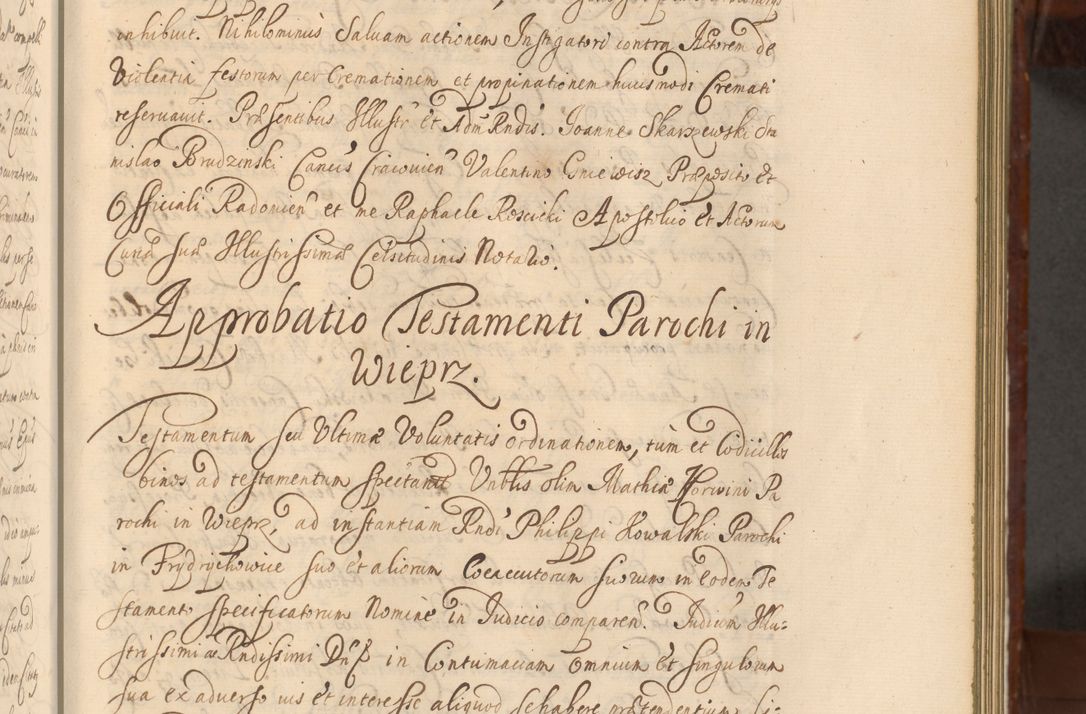 inhibuit. Nihilominus Saluam actionem Instigatori contra Actorem de
Violentia festorum per Cremationem et propinationem huiusmodi Cremati
reseruauit. Præsentibus Illustr et Adm Rndis. Joanne Skarszewski Sta
nislao Brudzinski Cancis Cracovien Valentino Gniewisz Præposito et
Officiali Radomien et me Raphaele Roscicki Apostolico et Actorum
Curiæ suæ Illustrissimæ Celsitudinis Notario.
Approbatio Testamenti Parochi in
Wieprz.
Testamentum seu Ultimæ Voluntatis ordinationem, tum et Codicillos
binos ad testamentum spectan Vnblis olim Mathiæ Horwini Pa
rochi in Wieprz, ad instantiam Rndi Philippi Kowalski Parochi
in Frydrychowice suo et aliorum Coexecutorum suorum in eodem Te
stamento specificatorum Nomine in Judicio comparen. Judicium Illu-
strissimi ac Rndissimi Dni in Contumaciam omnium et singulorum
sua ex aduerso uis et interesse aliquod se habere prætendentium Ci-